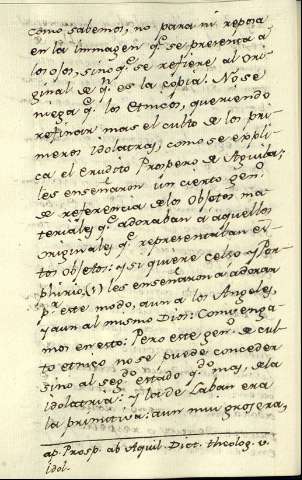 como sabemos, no para ni reposa
en la Immagen q.e se presenta a
los ojos, sino q.e se refiere al Ori-
ginal de q.n es la copia. No se
niega q.e los Etnicos, queriendo
refinar mas el culto de los pri-
meros idolatras, como se expli-
ca el erudito Prospero de Aguila,
les enseñaron un cierto gen.o
de referencia de los Objetos ma-
teriales q.e adoraban a aquellos
originales q.e representaban es-
tos Objetos: y si quiere Celso y Por-
phirio, (1) les enseñaron a adorar
p.r este modo, aun a los Angeles,
y aun al mismo Dios: Convenga-
mos en esto: Pero este gen.o de cul-
to etnico no se puede conceder
sino al seg.do estado q.do mas, de la
idolatria: y la de Laban era
la primitiva: aun mui grosera,
ap. Prosp. ab Aquil. Dict. theolog. v.
idol.